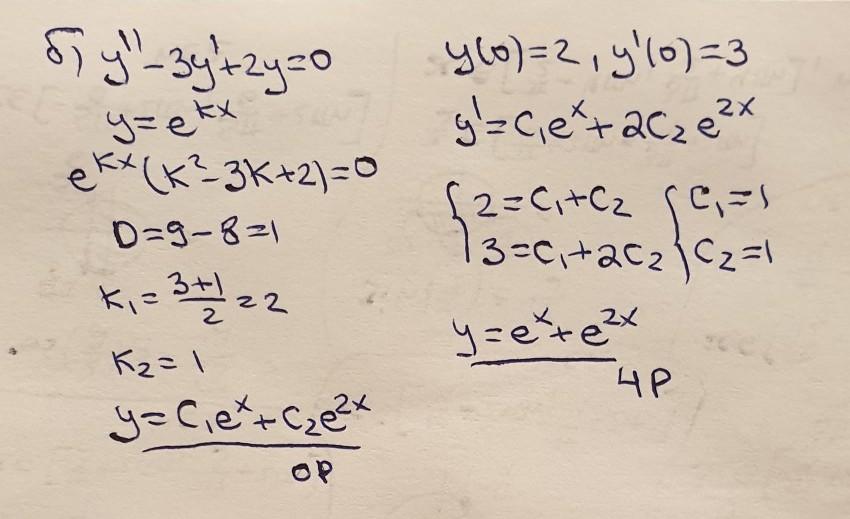 б) y'' - 3y' + 2y = 0
y = e^{kx}
e^{kx}(k² - 3k + 2) = 0
D = 9 - 8 = 1
k₁ = \frac{3+1}{2} = 2
k₂ = 1
y = C₁e^x + C₂e^{2x}
ОР
y(0) = 2, y'(0) = 3
y' = C₁e^x + 2C₂e^{2x}
{ 2 = C₁ + C₂ { C₁ = 1
{ 3 = C₁ + 2C₂ { C₂ = 1
y = e^x + e^{2x}
ЧР